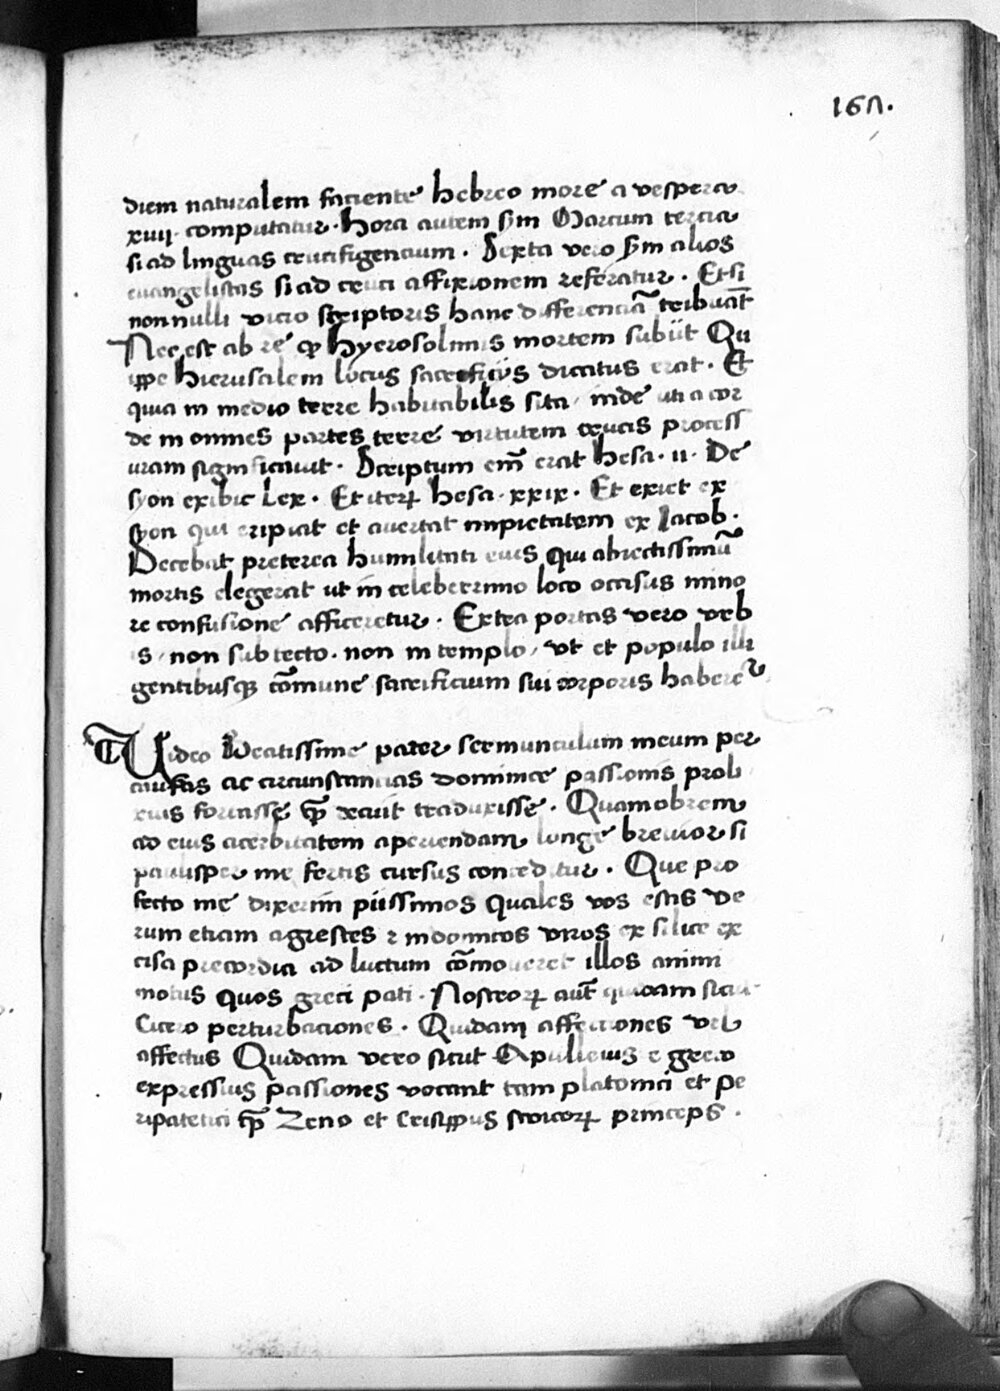 167.
diem naturalem faciente hebreo more a vespera
xiiij. computatur. hora autem sꝫm Marcum tercia
si ad linguas crucifigencium. Sexta vero sꝫm alios
euangelistas si ad cruci affixionem referatur. Et si
non nulli vicio scriptoris hanc differenciā tribuāt
Nec est ab re ꝙ hyerosolimis mortem subijt Qu
ippe hierusalem locus sacrificijs dicatus erat. Et
quia in medio terre habitabilis sita, inde uti a cor
de in omnes partes terre virtutem crucis process
uram significauit. Scriptum em̄ erat hesa. ii. De
syon exibit Lex. Et iterꝝ hesa. xxix. Et exiet ex
syon qui eripiat et auertat impietatem ex Iacob.
Decebat preterea humilitati eius qui abiectissimū
mortis elegerat ut in celeberrimo loco occisus mino
re confusione afficeretur. Extra portas vero vrb
is, non sub tecto. non in templo, vt et populo illi
gentibusqꝫ cōmune sacrificium sui corporis haberet᷑
Uideo Beatissime pater sermunculum meum per
causas ac circunstancias dominice passionis proli
xius fortasse ꝙ̄ decuit traduxisse. Quamobrem
ad eius acerbitatem aperiendam longe breuior si
paulisper me fertis cursus conceditur. Que pro
fecto me dixerim piissimos quales vos estis ve
rum etiam agrestes ⁊ indomitos viros ex silice ex
cisa precordia ad luctum cōmoueret illos animi
motus quos greci pati. Nostroꝝ aut̄ quidam sicut
Cicero perturbaciones. Quidam affectiones vel
affectus Quidam vero sicut Apulleius e greco
expressius passiones vocant tam platonici et pe
ripatetici ꝙ̄ Zeno et Crisippus stoicoꝝ princeps.